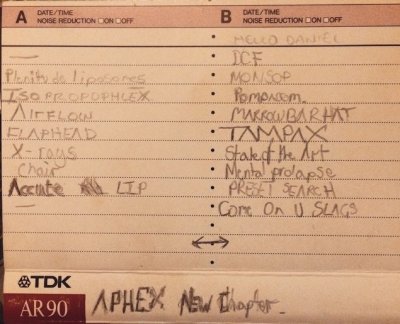 A DATE/TIME
NOISE REDUCTION □ON □OFF
—
Plenitude Liposomes
ISOPROPOPHLEX
AIRFLOW
FLAPHEAD
X-rays
Chair
Accute LIP
—
B DATE/TIME
NOISE REDUCTION □ON □OFF
HELLO DANIEL
ICF
MONSOP
Pompanom.
MARROWBAR HAT
TAMPAX
State of the Art
Mental prolapse
PRESET SEARCH
Come On U SLAGS
↔
TDK
AR90
APHEX New Chapter.